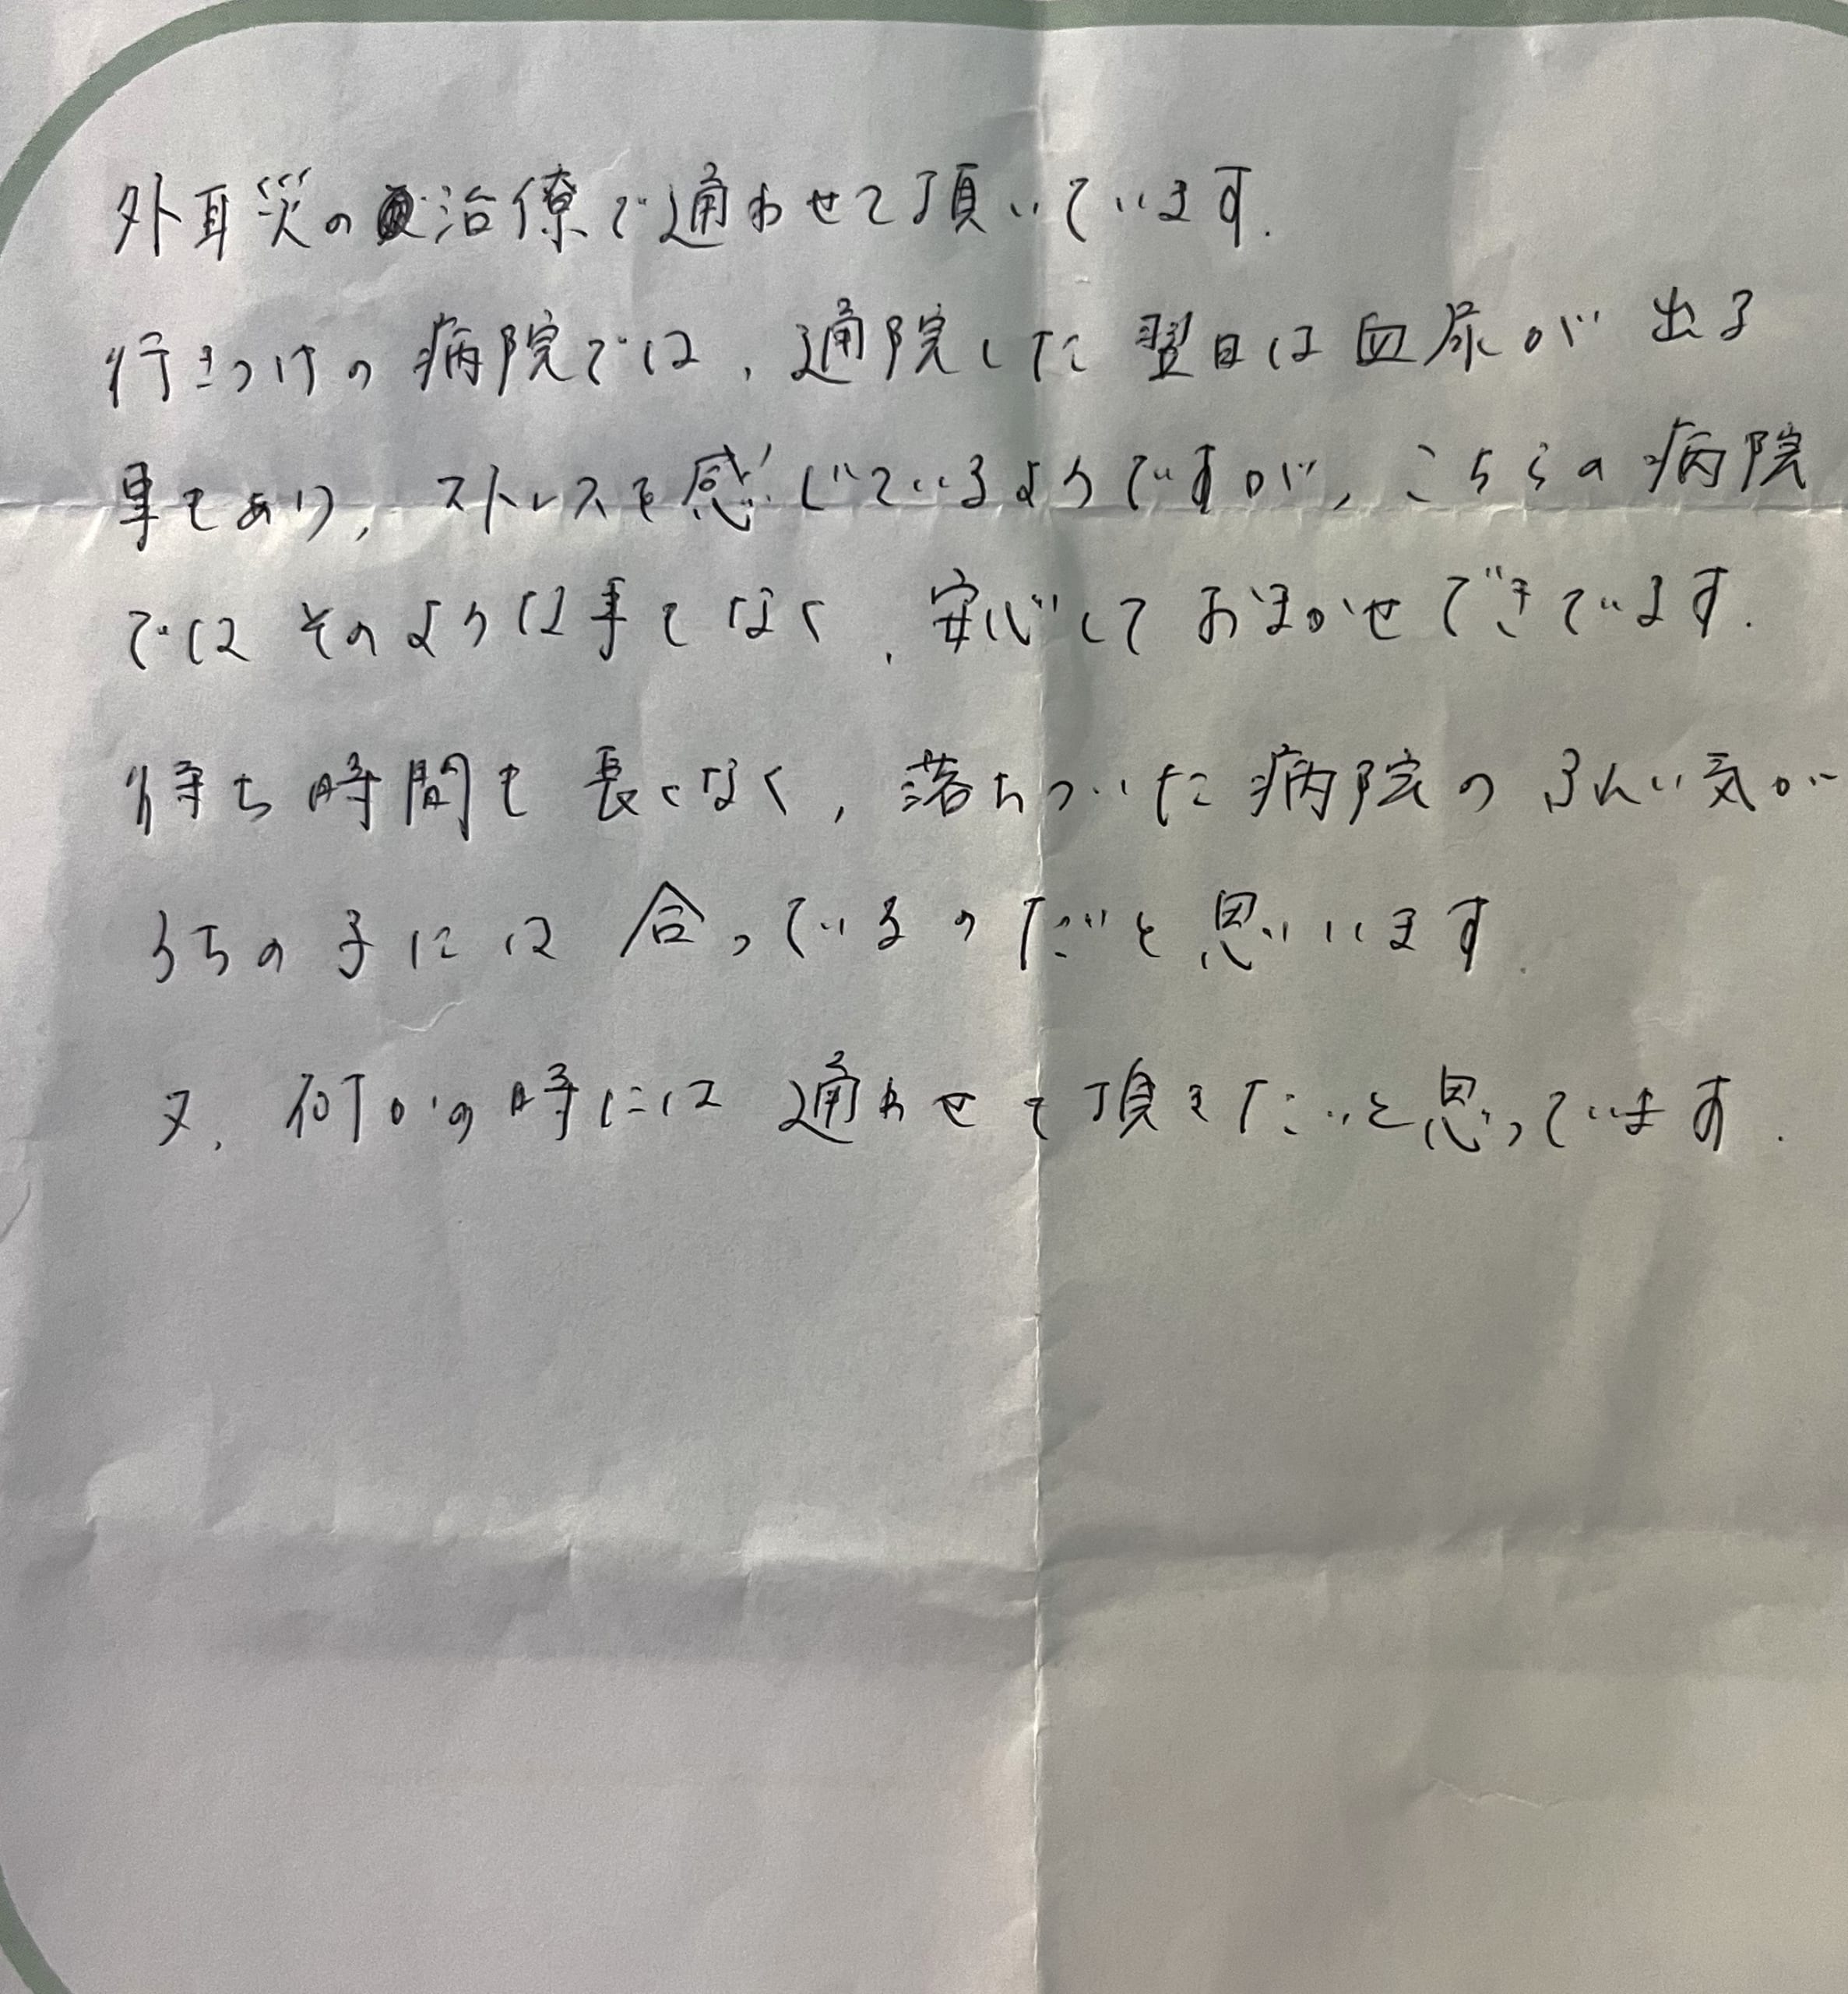 外耳災の治僚で通わせて頂いています.
行きつけの病院では、通院した翌日は血尿が出る
事もあり、ストレスを感じているようですが、こちらの病院
ではそのような事もなく、安心しておまかせできています.
待ち時間も長くなく、落ちついた病院のふんい気が
うちの子には合っているのだと思います.
又、何かの時には通わせて頂きたいと思っています.